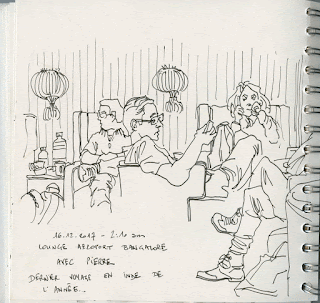 16.12.2017 - 2:10 am
LOUNGE AEROPORT BANGALORE
AVEC PIERRE
DERNIER VOYAGE EN INDE DE
L'ANNÉE...